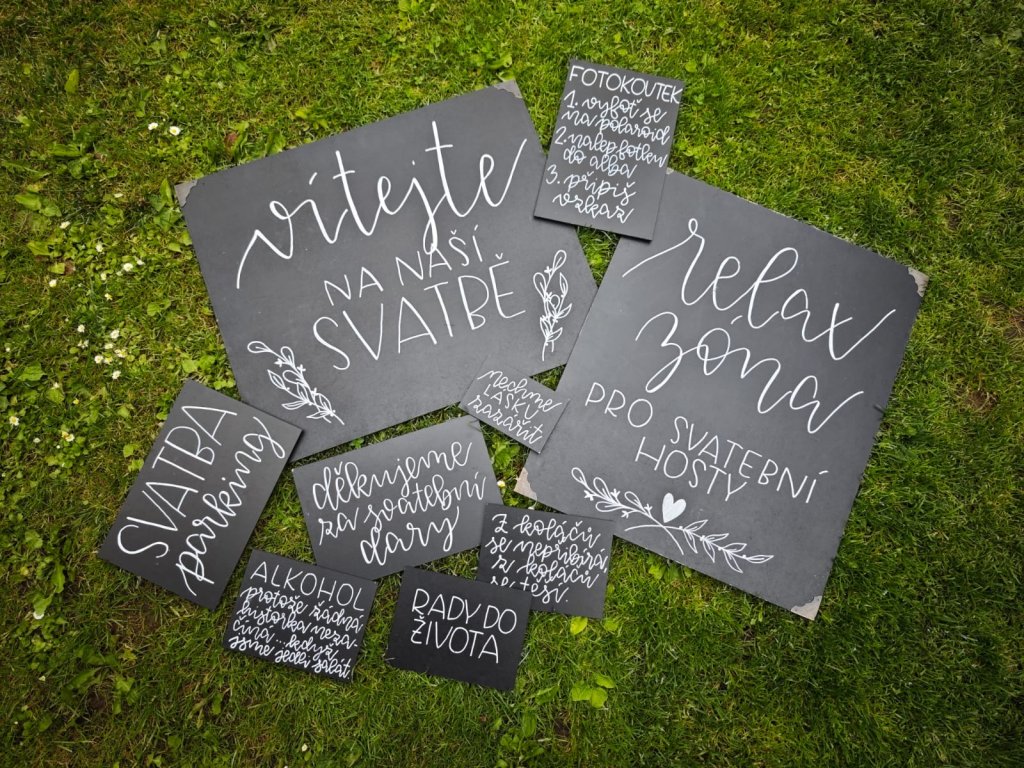 vítejte
NA NAŠÍ
SVATBĚ
FOTOKOUTEK
1. vyfoť se
na polaroid
2. nalep fotku
do alba
3. připiš
vzkaz
relax
zóna
PRO SVATEBNÍ
HOSTY
nechme
LÁSKU
zazářit
SVATBA
parking
děkujeme
za svatební
dary
Z koláčů
se nepřibírá,
z koláčů
se těší.
ALKOHOL
protože žádná
historka neza-
číná ... když
jsme jedli salát
RADY DO
ŽIVOTA